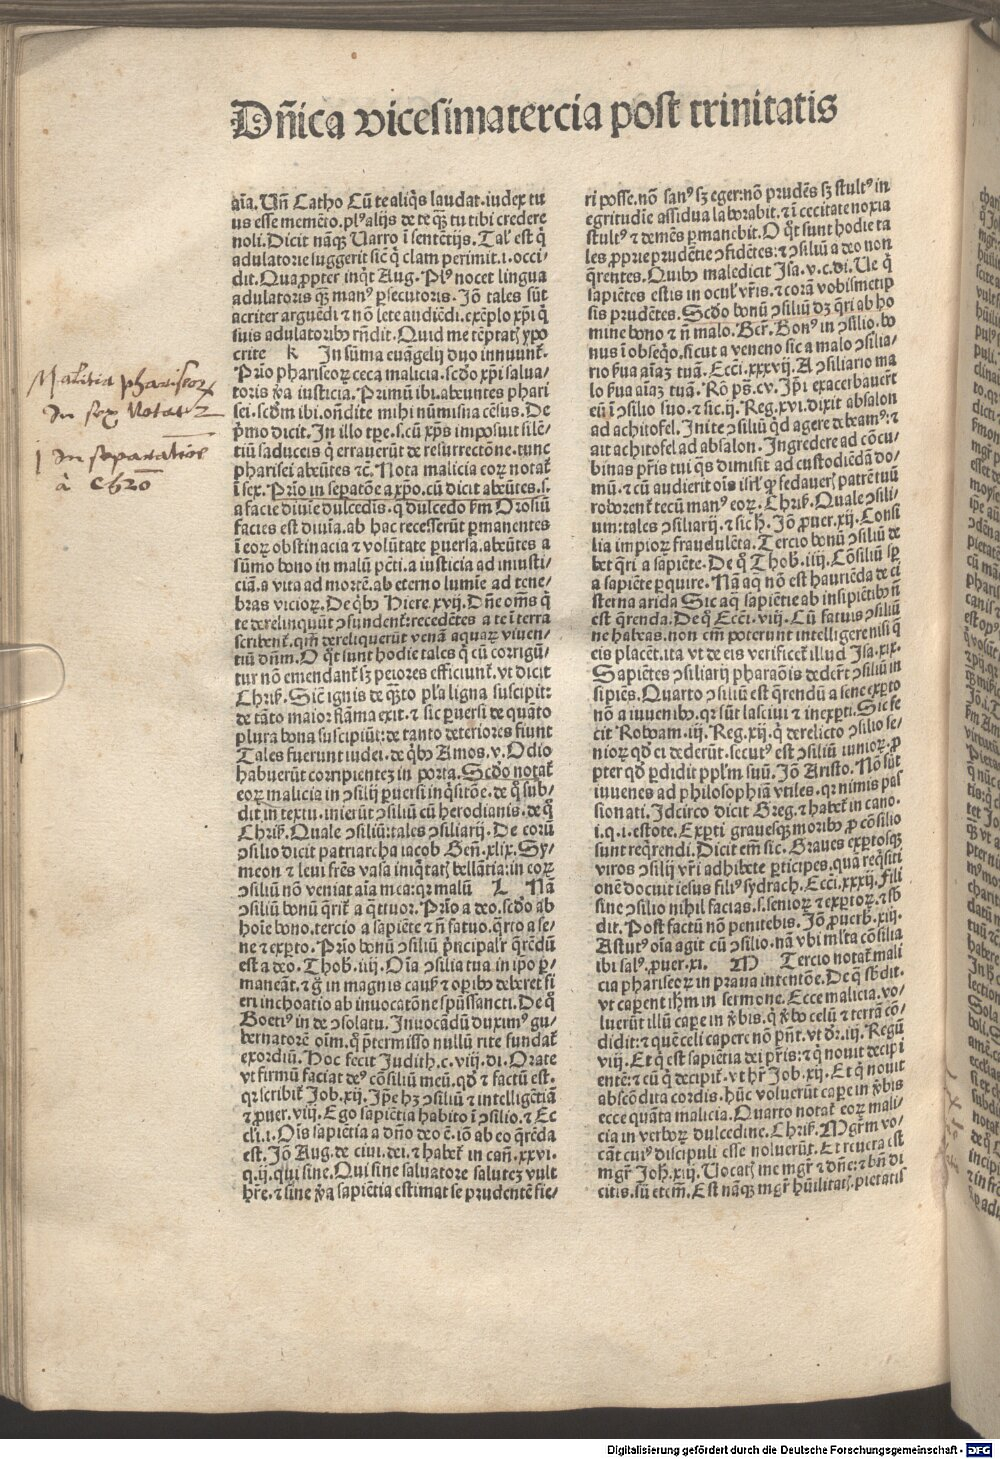 Dñica vicesimatercia post trinitatis
aīa. Vñ Catho Cū te aliq̄s laudat. iudex tu
us esse memēto. plꝰ alijs de te qȝ tu tibi credere
noli. Dicit nāqȝ Uarro ī sentētijs. Tal' est q̄
adulatorie suggerit sic̄ q̄ clam perimit. ı. occi/
dit. Quaꝓpter inq̄t Aug. Plꝰ nocet lingua
adulatoris qȝ manꝰ ꝑsecutoris. Jō tales sūt
acriter arguēdi ⁊ nō lete audiēdi. exēplo xp̄i q̄
suis adulatoribꝰ rñdit. Quid me tēptatꝭ ypo
crite K Jn sūma euāgelij duo innuunt᷑.
Prīo phariseoꝝ ceca malicia. scd̓o xp̄i salua/
toris ꝟa iusticia. Primū ibi. abeuntes phari
sei. scd̓m ibi. oñdite mihi nūmisma cēsus. De
p̄mo dicit. Jn illo tꝑe. s. cū xp̄s imposuit silē/
tiū saduceis q̄ errauerūt de resurrectōne. tunc
pharisei abeūtes ⁊c̄. Nota malicia eoꝝ notat᷑
ī sex. Prīo in seperatōe a xp̄o. cū dicit abeūtes. s.
a facie diuīe dulcedīs. q̄ dulcedo ẜm Orosiū
facies est diuīa. ab hac recesserūt ꝑmanentes
ī eoꝝ obstinacia ⁊ volūtate ꝑuersa. abeūtes a
sūmo bono in malū pc̄ti. a iusticia ad iniusti/
ciā. a vita ad mortē. ab eterno lumīe ad tene/
bras vicioꝝ. De q̄bꝰ Hiere. xvij. Dñe om̄s q̄
te derelinquūt ꝯfundent᷑: recedētes a te ī terra
scribent᷑. qm̄ dereliquerūt venā aquaꝝ viuen/
tiū dn̄m. O q̄t sunt hodie tales q̄ cū corrigū/
tur nō emendant᷑ sȝ peiores efficiunt᷑. vt dicit
Chris̄. Sic̄ ignis de q̄ȝto pl'a ligna suscipit:
de tāto maior flāma exit. ⁊ sic ꝑuersi de quāto
plura bona suscipiūt: de tanto deteriores fiunt
Tales fuerunt iudei. de q̄bꝰ Amos. v. Odio
habuerūt corripientez in porta. Scd̓o notat᷑
eoꝝ malicia in ꝯsilij ꝑuersi inq̄sitōe. de q̄ sub/
dit in textu. inierūt ꝯsiliū cū herodianis. de q̄
Chris̄. Quale ꝯsiliū: tales ꝯsiliarij. De corū
ꝯsilio dicit patriarcha iacob Geñ. xlix. Sy/
meon ⁊ leui fr̄es vasa iniq̄tatꝭ bellātia: in eoꝝ
ꝯsiliū nō veniat aīa mea: qꝛ malū L Nā
ꝯsiliū bonū q̄rit᷑ a q̄ttuor. Prīo a deo. scd̓o ab
hoīe bono. tercio a sapiēte ⁊ ñ fatuo. q̄rto a se/
ne ⁊ exꝑto. Prīo bonū ꝯsiliū p̄ncipal'r q̄rēdū
est a deo. Thob. iiij. Oīa ꝯsilia tua in ip̄o ꝑ/
maneāt. ⁊ g̊ in magnis caus̄ ⁊ oꝑibꝰ deberet fi
eri inchoatio ab inuocatōne sp̄ussancti. De q̄
Boetiꝰ in de ꝯsolatu. Jnuocādū duximꝰ gu/
bernatorē oīm. q̄ p̄termisso nullū rite fundat᷑
exordiū. Hoc fecit Judith. c. viij. di. Orate
vt firmū faciat deꝰ cōsiliū meū. qd̓ ⁊ factū est.
qꝛ scribit᷑ Job. xij. Jp̄e hȝ ꝯsiliū ⁊ intelligētiā
⁊ ꝓuer. viij. Ego sapiētia habito ī ꝯsilio. ⁊ Ec
cl'i. ı. Oīs sapiētia a dño deo ē. iō ab eo q̄rēda
est. Jō Aug. de ciui. dei. ⁊ habet᷑ in cañ. xxvi.
q. ij. qui sine. Qui sine saluatore salutez vult
hr̄e. ⁊ sine ꝟa sapiētia estimat se prudentē fie/
ri posse. nō sanꝰ sȝ eger: nō prudēs sȝ stultꝰ in
egritudīe assidua laborabit. ⁊ ī cecitate noxia
stultꝰ ⁊ demēs ꝑmanebit. O q̄t sunt hodie ta
les. ꝓprie prudētie ꝯfidētes: ⁊ ꝯsiliū a deo non
q̄rentes. Quibꝰ maledicit Jsa. v. c. di. Ue q̄
sapiētes estis in ocul' vr̄is. ⁊ corā vobismetip
sis prudētes. Scd̓o bonū ꝯsiliū dȝ q̄ri ab ho
mine bono ⁊ ñ malo. Ber̄. Bonꝰ in ꝯsilio. bo
nus ī obseq̄o. sicut a veneno sic a malo ꝯsilia/
rio ẜua aīaȝ tuā. Ecc̄i. xxxvij. A ꝯsiliario ma
lo ẜua aīaȝ tuā. Rō ps̄. cv. Jp̄i exacerbauer̄t
eū ī ꝯsilio suo. ⁊ sic. ij. Reg. xvi. dixit absalon
ad achitofel. Jnite ꝯsiliū qd̓ agere debeamꝰ: ⁊
ait achitofel ad absalon. Jngredere ad cōcu/
binas pr̄is tui q̄s dimisit ad custodiēdā do/
mū. ⁊ cū audierit oīs isrl̄ ꝙ fedauer̄ patrē tuū
roborent᷑ tecū manꝰ eoꝝ. Chris̄. Quale ꝯsili/
um: tales ꝯsiliarij. ⁊ sic ħ. Jō ꝓuer. xij. Consi
lia impioꝝ fraudulēta. Tercio bonū ꝯsiliū de
bet q̄ri a sapiēte. De q̄ Thob. iiij. Cōsiliū sꝑ
a sapiēte ꝑquire. Nā aq̄ nō est haurīēda de ci
sterna arida Sic aq̄ sapiētie ab insipiētibꝰ ñ
est q̄renda. De q̄ Ecc̄i. viij. Cū fatuis ꝯsiliū
ne habeas. non em̄ poterunt intelligere nisi q̄
eis placēt. ita vt de eis verificet᷑ illud Jsa. xix.
Sapiētes ꝯsiliarij pharaōis deder̄t ꝯsiliū in
sipiēs. Quarto ꝯsiliū est q̄rendū a sene exꝑto
nō a iuuenibꝰ. qꝛ sūt lasciui ⁊ inexꝑti. Sic fe
cit Roboam. iij. Reg. xij. q̄ derelicto ꝯsilio se/
nioꝝ qd̓ ei dederūt. secutꝰ est ꝯsiliū iunioꝝ. ꝓ
pter qd̓ ꝑdidit ppl'm suū. Jō Aristo. Nō sūt
iuuenes ad philosophiā vtiles. qꝛ nimis pas
sionati. Jdcirco dicit Greg. ⁊ habet᷑ in cano.
i. q. ı. estote. Exꝑti grauesqȝ moribꝰ ꝓ cōsilio
sunt req̄rendi. Dicit em̄ sic. Graues exꝑtosqȝ
viros ꝯsilij vr̄i adhibete ꝑticipes. quā req̄siti
onē docuit iesus filiꝰ sydrach. Ecc̄i. xxxij. Fili
sine ꝯsilio nihil facias. s. senioꝝ ⁊ exꝑtoꝝ. ⁊ sb̄
dit. Post factū nō penitebis. Jō ꝓuerb. xiij.
Astutꝰ oīa agit cū ꝯsilio. nā vbi ml̄ta cōsilia
ibi salꝰ. ꝓuer. xi. M Tercio notat᷑ mali
cia phariseoꝝ in praua intentōe. De q̄ sb̄dit.
vt caperent ih̄m in sermone. Ecce malicia. vo/
luerūt illū caꝑe in ꝟbis. q̄ ꝟbo celū ⁊ terrā cō/
didit: ⁊ quē celi capere nō pn̄t. vt dr̄. iij. Regū
viij. Et q̄ est sapiētia dei pr̄is: ⁊ q̄ nouit decipi
entē: ⁊ cū q̄ decipit᷑. vt hr̄ Job. xij. Et q̄ nouit
abscōdita cordis. hūc voluerūt caꝑe in ꝟbis
ecce quāta malicia. Quarto notat᷑ eoꝝ mali/
cia in verboꝝ dulcedine. Chris̄. Mgr̄m vo/
cāt cuiꝰ discipuli esse noluerūt. Et reuera est
mgr̄ Joh̄. xiij. Uocatꝭ me mgr̄ ⁊ dñe: ⁊ bn̄ di
citis. sū etem̄. Est nāqȝ mgr̄ hūilitatꝭ. pietatis
Malitia phariseoꝝ
In sex Notatur
1 In separatiōe
à CHRO
Digitalisierung gefördert durch die Deutsche Forschungsgemeinschaft - DFG